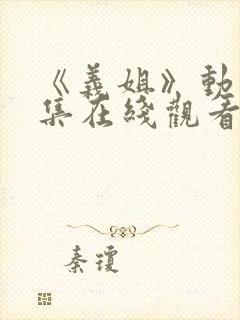 《義姐》動
集在綫觀看
秦瓊